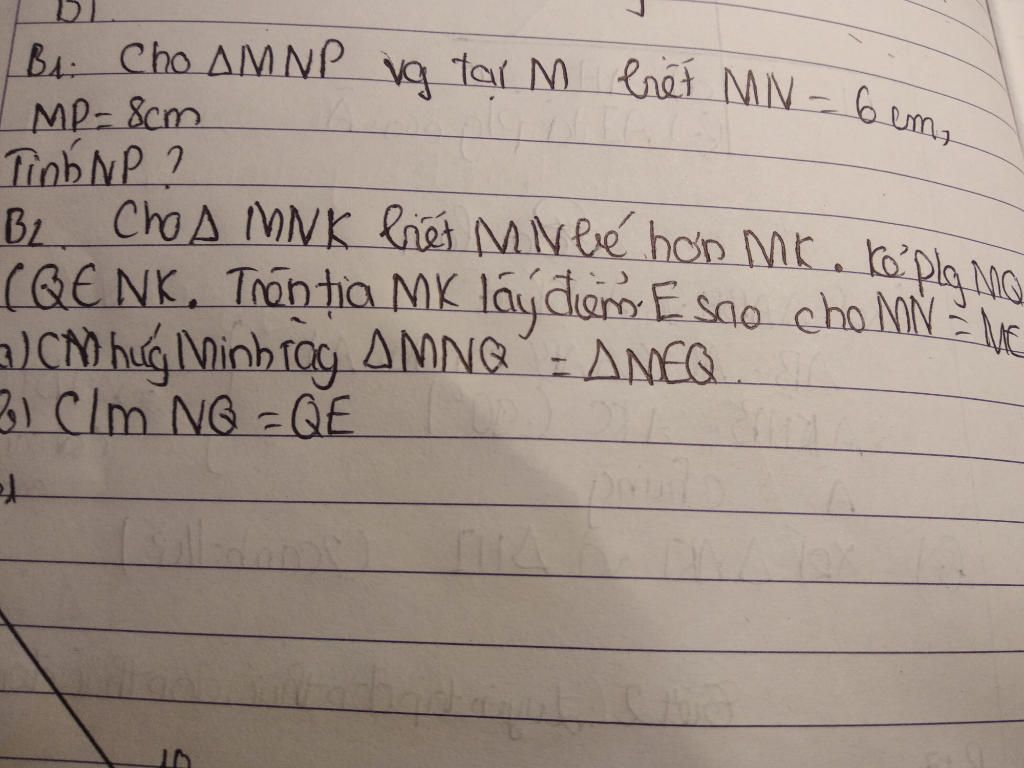 B1: Cho ΔMNP vg tại M biết MN = 6 cm,
MP = 8cm
Tính NP ?
B2. Cho Δ MNK biết MN bé hơn MK. Kẻ plg MQ
(QЄNK. Trên tia MK lấy điểm E sao cho MN = ME
a) CM hứg Minh rằg ΔMNQ = ΔMEQ.
b) C/m NQ = QE